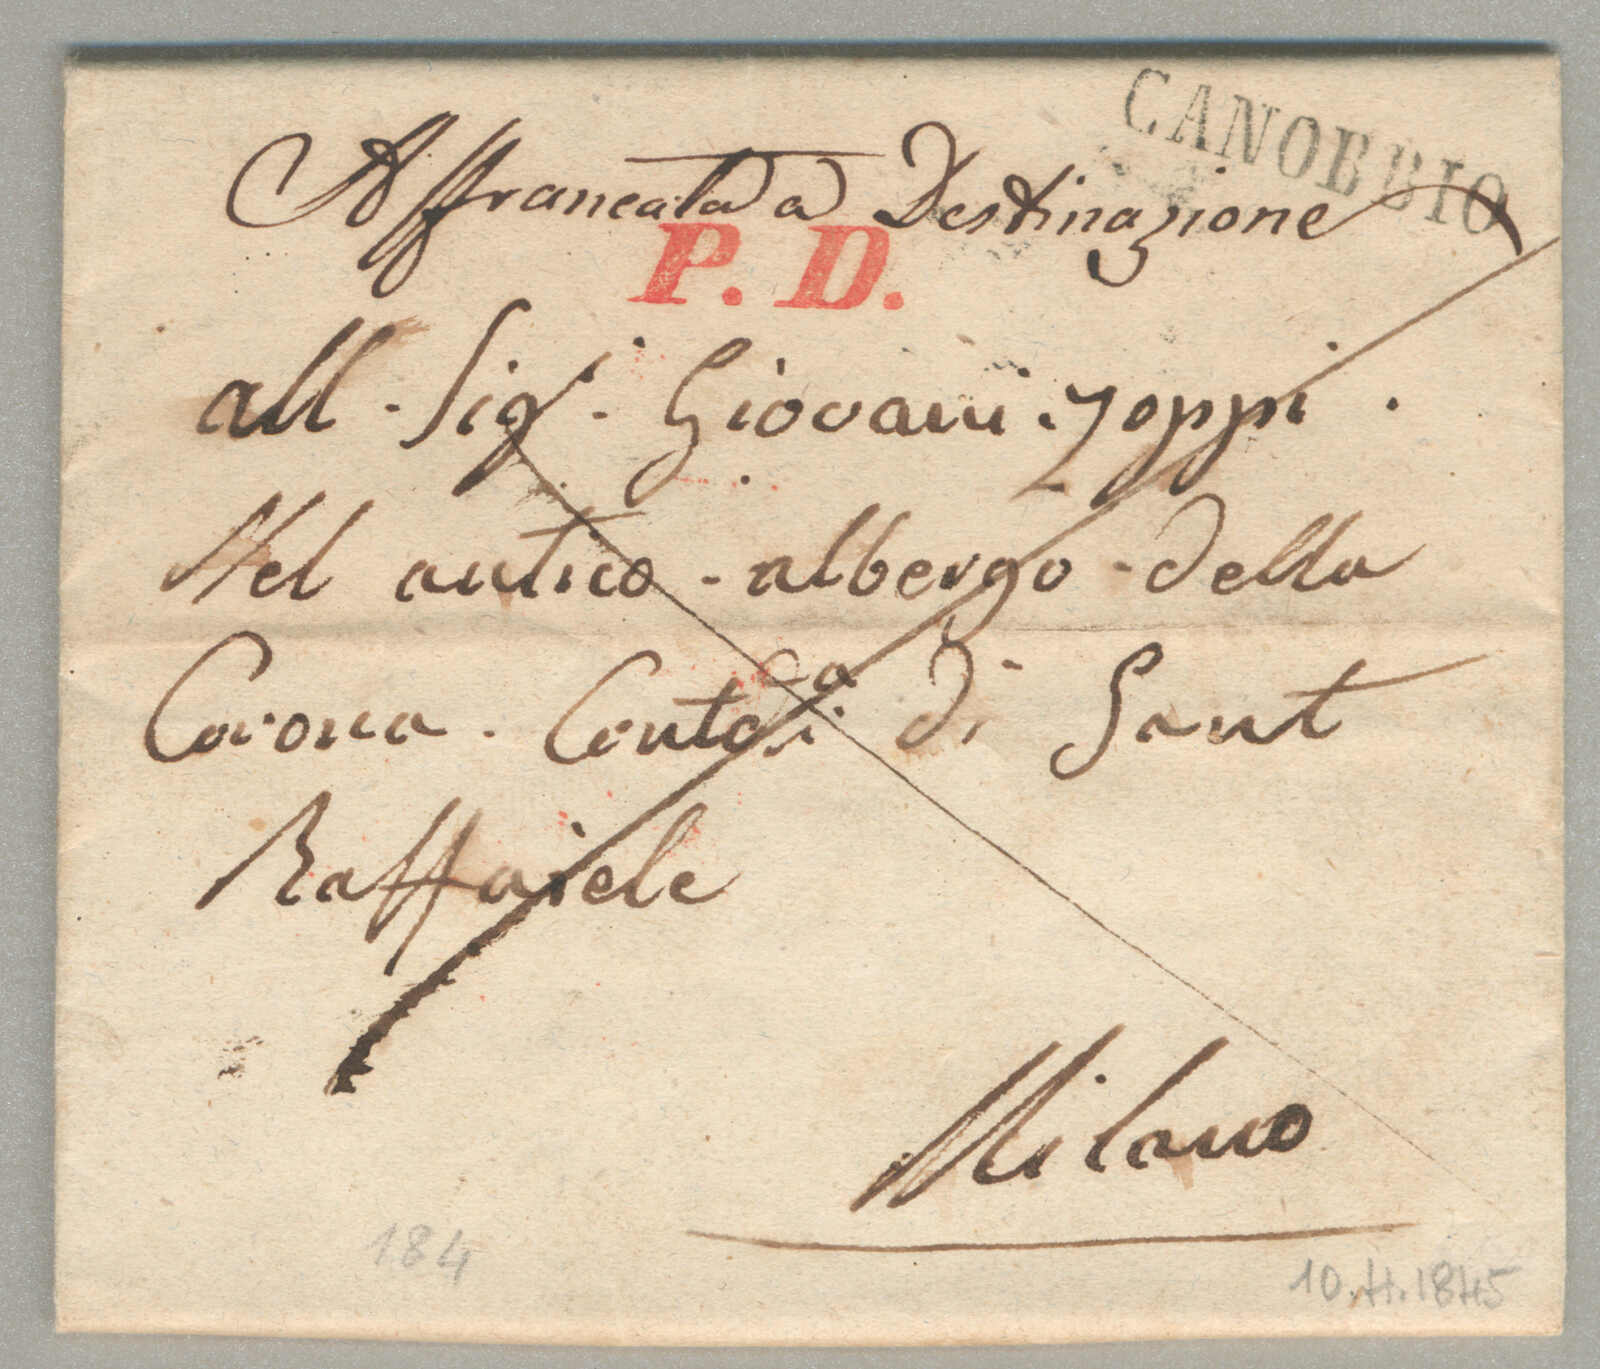 CANOBBIO
Affrancata a Destinazione
P. D.
all - Sig.r - Giovani Zoppi.
Nel antico - albergo - della
Corona - Contda di Sant
Raffaiele
Milano
184
10.11.1845